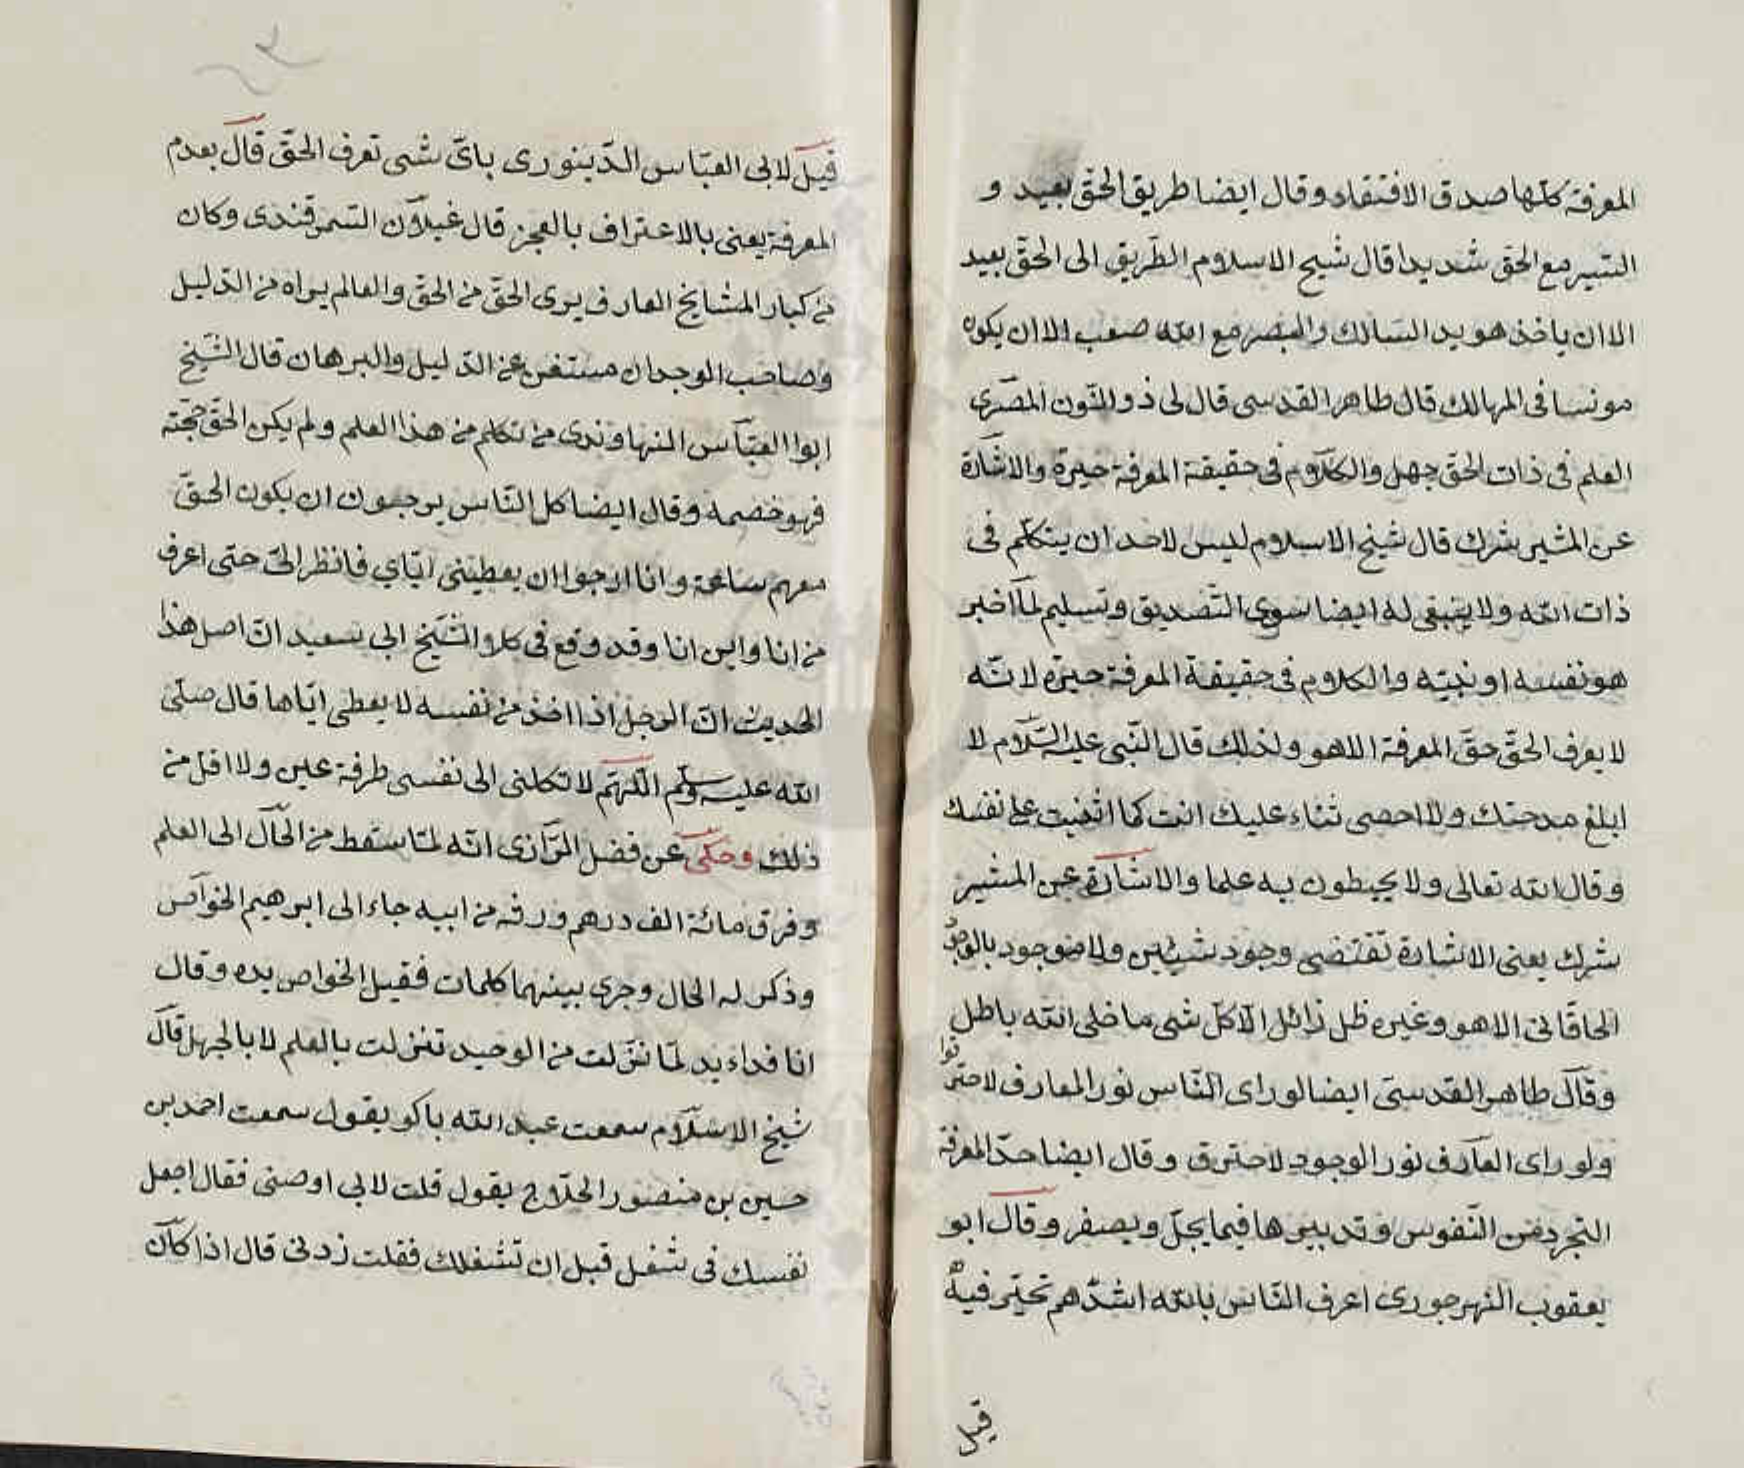 المعرفة كلها صدق الافتقاد وقال ايضا طريق الحق بعيد و
السير مع الحق شديدا قال شيخ الاسلام الطريق الى الحق بعيد
الا ان ياخذ هو يد السالك والبصر مع الله صعب الا ان يكون
مونسا فى المهالك قال طاهر القدسى قال لى ذو النون المصرى
العلم فى ذات الحق جهل والكلام فى حقيقة المعرفة حيرة والاشارة
عن المشير شرك قال شيخ الاسلام ليس لاحد ان يتكلم فى
ذات الله ولا ينبغى له ايضا سوى التصديق وتسليم لما اخبر
هو نفسه او نبيه والكلام فى حقيقة المعرفة حيرة لانه
لا يعرف الحق حق المعرفة الا هو ولذلك قال النبى عليه السلام لا
ابلغ مدحتك ولا احصى ثناء عليك انت كما اثنيت على نفسك
وقال الله تعالى ولا يحيطون به علما والاشارة عن المشير
شرك يعنى الاشارة تقتضى وجود شيئين ولا موجود بالوجود
الحاقانى الا هو وغيره ظل زائل الا كل شى ما خلى الله باطل
وقال طاهر القدسى ايضا لو راى الناس نور المعارف لاحترقوا
ولو راى العارف نور الوجود لاحترق وقال ايضا حد المعرفة
التجرد من النفوس وتدبيرها فيما يجل ويصغر وقال ابو
يعقوب النهرجورى اعرف الناس بالله اشدهم تحير فيه
قيل
قيل لابى العباس الدينورى باى شى تعرف الحق قال بعدم
المعرفة يعنى بالاعتراف بالعجز قال غيلان السمرقندى وكان
من كبار المشايخ العارف يرى الحق من الحق والعالم يراه من الدليل
وصاحب الوجدان مستغن عن الدليل والبرهان قال الشيخ
ابوا العباس النهاوندى من تكلم من هذا العلم ولم يكن الحق حجته
فهو خصمه وقال ايضا كل الناس يرجون ان يكون الحق
معهم ساعة وانا ارجوا ان يعطينى اياي فانظر الى حتى اعرف
من انا واين انا وقد وقع فى كلام الشيخ ابى سعيد ان اصل هذا
الحديث ان الرجل اذا اخذ من نفسه لا يعطى اياها قال صلى
الله عليه وسلم اللهم لا تكلنى الى نفسى طرفة عين ولا اقل من
ذلك وحكى عن فضل الرازى انه لما سقط من الحال الى العلم
وفرق مائة الف درهم ورثه من ابيه جاء الى ابرهيم الخواص
وذكر له الحال وجرى بينهما كلمات فقبل الخواص يده وقال
انا فداء يد لما نزلت من الوحيد تنزلت بالعلم لا بالجهل قال
شيخ الاسلام سمعت عبد الله باكو يقول سمعت احمد بن
حسين بن منصور الحلاج يقول قلت لابى اوصنى فقال اجعل
نفسك فى شغل قبل ان تشغلك فقلت زدنى قال اذا كان